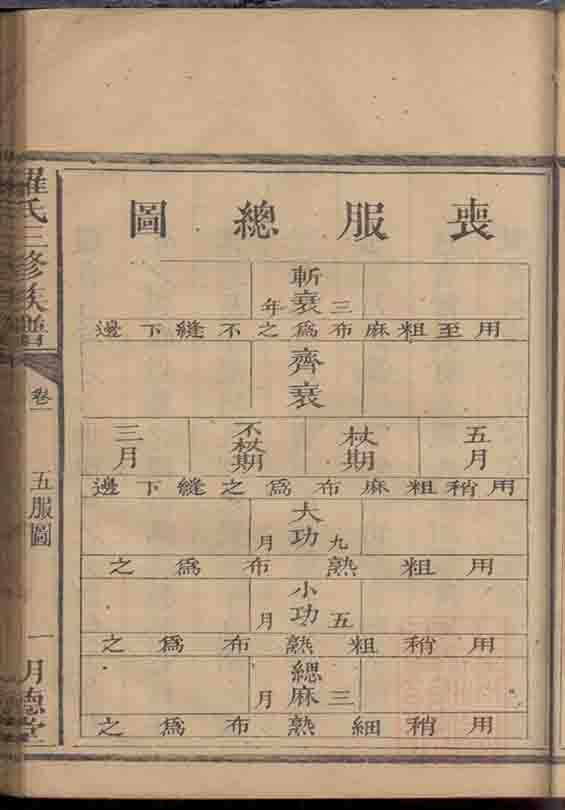 喪服總圖
斬衰三年
用至粗麻布為之不縫下邊
齊衰
五月
杖期
不杖期
三月
用稍粗麻布為之縫下邊
大功九月
用粗熟布為之
小功五月
用稍粗熟布為之
緦麻三月
用稍細熟布為之
羅氏三修族譜
卷一
五服圖
一
月德堂